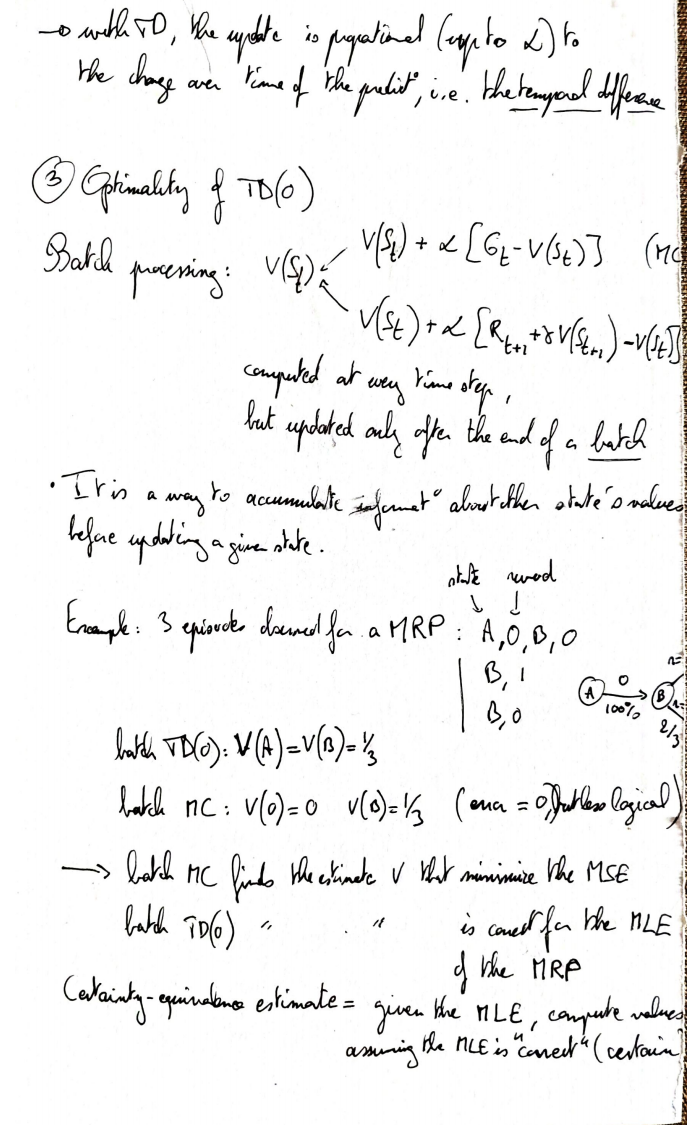 → with TD, the update is proportional (up to α) to
the change over time of the predict°, i.e. the temporal difference
③ Optimality of TD(0)
Batch processing: V(S_t) ← V(S_t) + α [G_t - V(S_t)] (MC
V(S_t) + α [R_{t+1} + γV(S_{t+1}) - V(S_t)]
computed at every time step,
but updated only after the end of a batch
• It is a way to accumulate informat° about other state's values
before updating a given state.
state reward
Example: 3 episodes observed for a MRP : A,0,B,0
B, 1
B, 0
A 0 100% B r= r= 2/3
batch TD(0): V(A)=V(B)=1/3
batch MC: V(0)=0 V(B)=1/3 (error = 0, but less logical)
→ batch MC finds the estimate V that minimize the MSE
batch TD(0) " " is correct for the MLE
of the MRP
Certainty-equivalence estimate = given the MLE, compute values
assuming the MLE is "correct" (certain